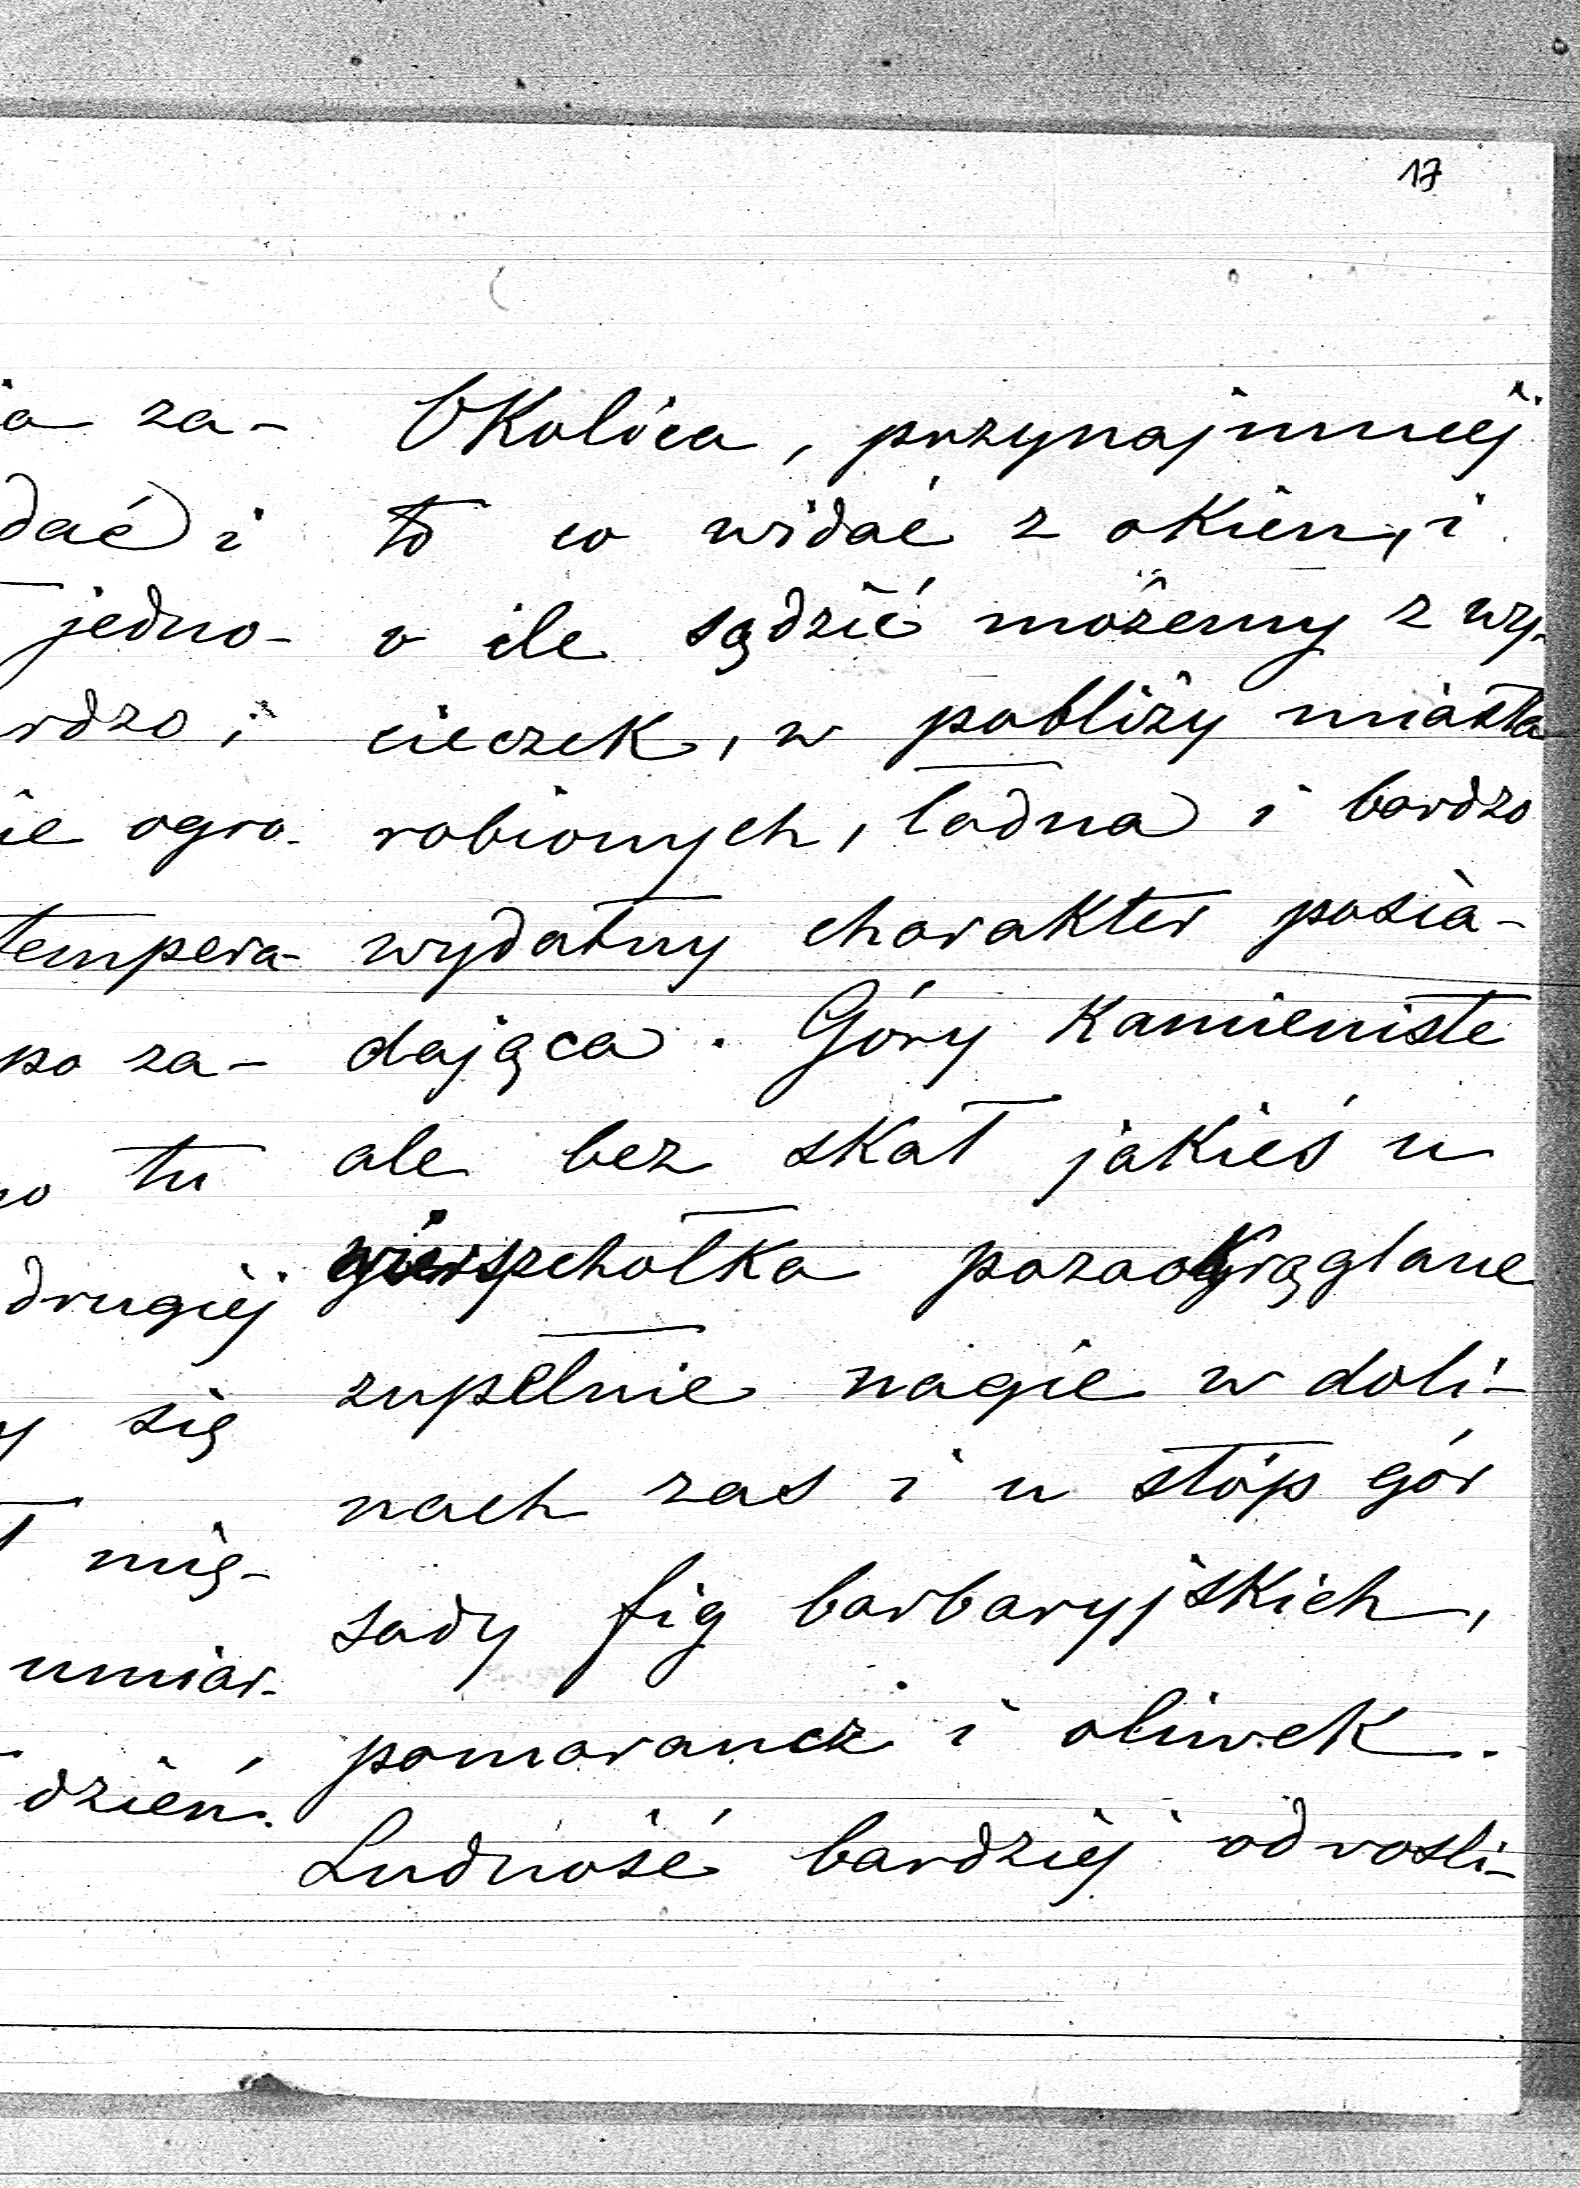 17
ia za-
dać i
jedno-
rdzo,
ie ogro-
tempera-
po za-
tu
drugiej
się
mię-
umiar-
dzień.
Okolica, przynajmniej
to co widać z okien, i
o ile sądzić możemy z wy-
cieczek, w pobliży miasta
robionych, ładna i bardzo
wydatny charakter posia-
dająca. Góry kamieniste
ale bez skał jakieś u
wierszchołka pozaokrąglane
zupełnie nagie w doli-
nach zas i u stóp gór
sady fig barbaryjskich,
pomarancz i oliwek.
Ludność bardziej od rośli-